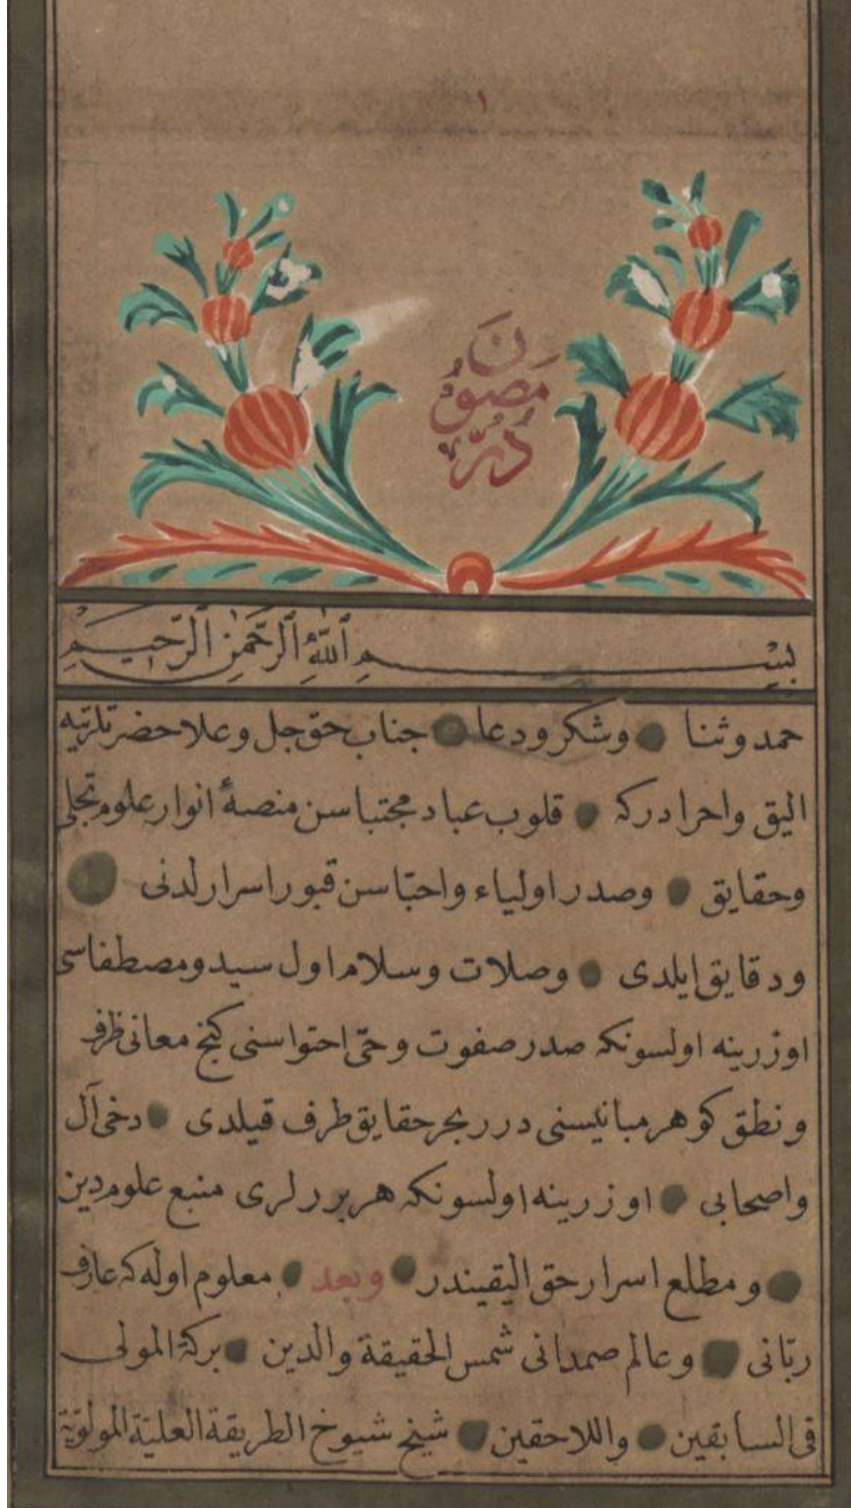 ١
درّ مصون
بسم الله الرحمن الرحيم
حمد وثنا وشكر ودعا جناب حق جل وعلا حضرتلرتيه
اليق واحرادركه قلوب عباد مجتباسن منصهٔ انوار علوم تجلى
وحقايق وصدر اولياء واحبّاسن قبور اسرار لدنى
ودقايق ايلدى وصلات وسلام اول سيد ومصطفاسى
اوزرينه اولسونكه صدر صفوت وحتى احتواسنى كنج معانى ظرف
ونطق كوهر مبانيسنى درر بحر حقايق طرف قيلدى دخى آل
واصحابى اوزرينه اولسونكه هر بررلرى منبع علوم دين
ومطلع اسرار حق اليقيندر وبعد معلوم اوله كه عارف
ربّانى وعالم صمدانى شمس الحقيقة والدين بركة المولى
فى السابقين واللاحقين شيخ شيوخ الطريقة العليّة المولويّة